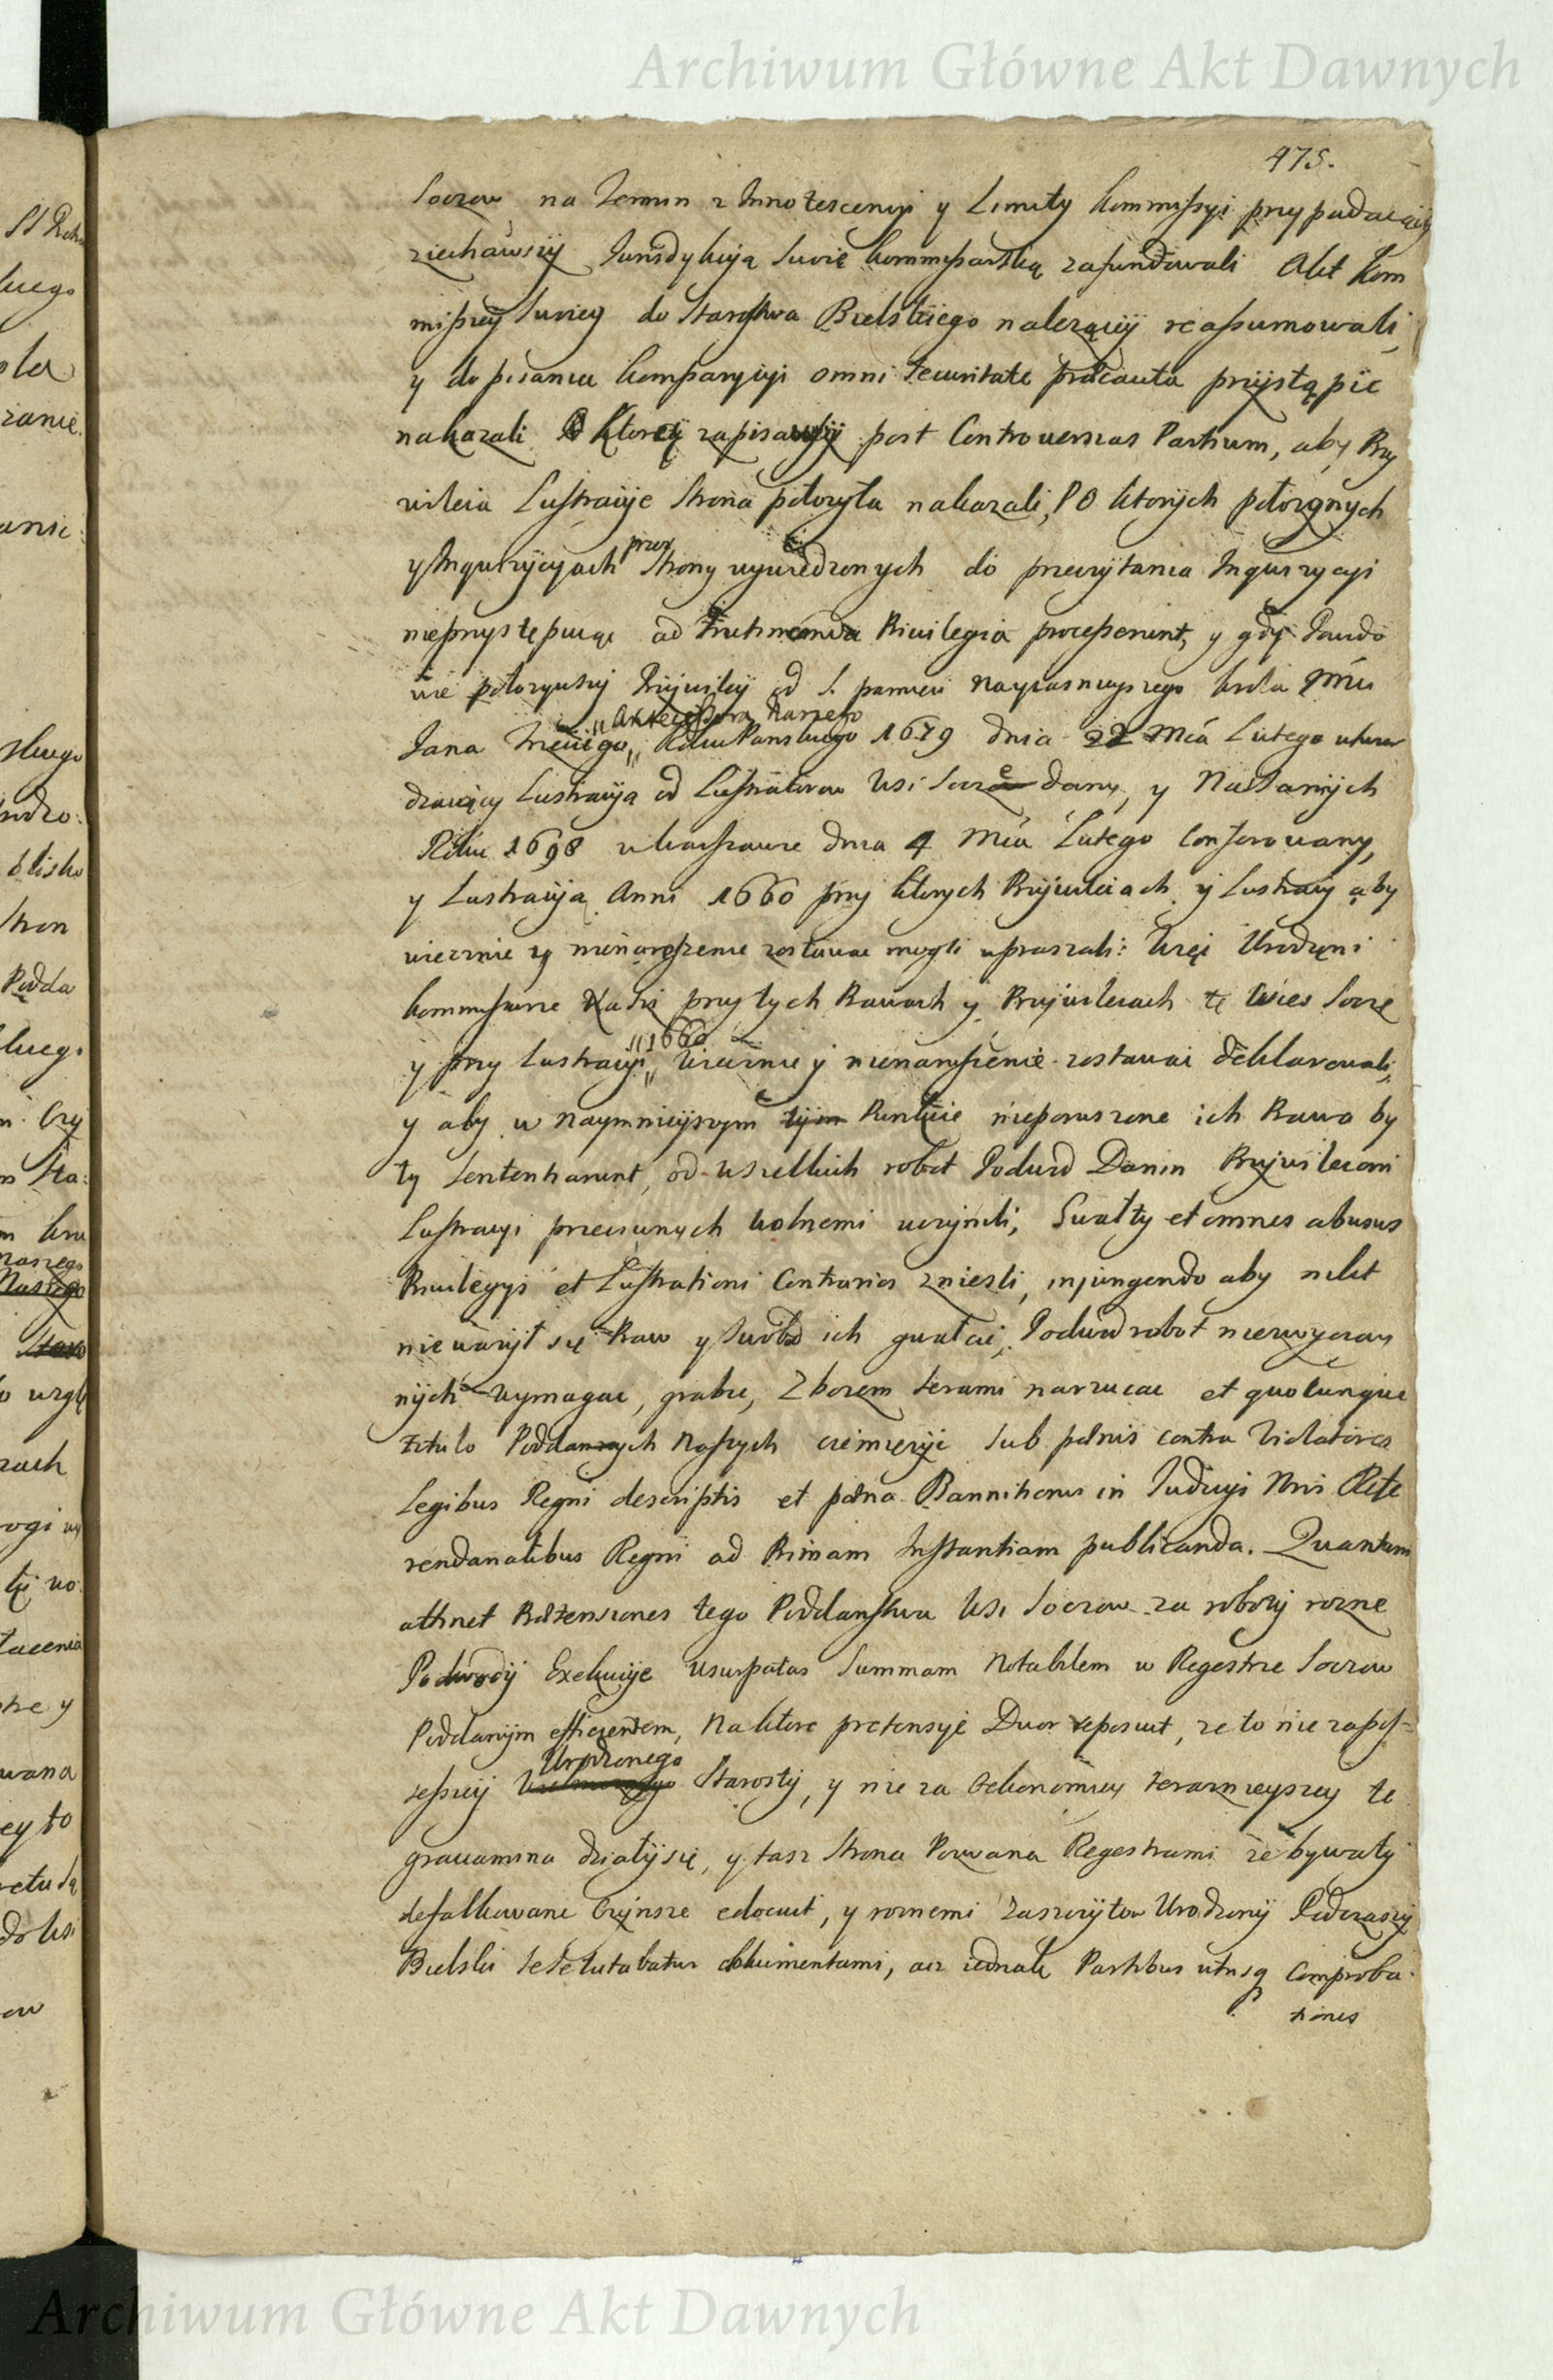 Archiwum Główne Akt Dawnych
475.
Soczow na Termin z Innotescencyi y Limity Kommissyi przypadaiący
ziechawszy Jurisdykcyą Swoię Kommissarską zafundowali Akt Kom
missyey Swoiey do Starostwa Bielskiego nalezącey reassumowali
y do pisania Komparycyi omni securitate præcauta przystąpić
nakazali ktorey zapisawszy post Controversias Partium, aby Pry
wileia Lustracye Strona położyła nakazali, PO ktorych położonych
y Inquizycyach przez Strony wywiedzonych do przeczytania Inquizycyi
nieprzystępuiąc ad Privilegia processerunt, y gdy Powodo
wie połozywszy Przywiley od S. pamieci Nayiasnieyszego Krola Jmci
"Antecessora Naszego
Jana Trzeciego" Roku Panskiego 1679 dnia 22 Mca Lutego utwier
dzaiący Lustracyą od Lustratorow Wsi Socze dany, y Nastarych
Roku 1698 w Warszawie dnia 4 Mca Lutego Conferowany,
y Lustracyą Anni 1660 przy ktorych Przywileiach y Lustracyi aby
wiecznie y nienaruszenie zostawac mogli upraszali: Więc Urodzeni
Kommissarze Nasi przy tych Prawach y Przywileiach tę Wies Socze
"1660
y przy Lustracyi" Wiecznie y nienaruszenie zostawac deklarowali,
y aby w naymnieyszym tym Punkcie nieporuszone ich Prawa by
ły sententiarunt, od wszelkich robot Podwod Danin Przywileiom
Lustracyi przeciwnych wolnemi uczynili, Gwałty et omnes abusus
Privilegys et Lustrationi Contrarios zniesli, injungendo aby nikt
nie wazył się Praw y Swobod ich gwałcić, Podwod robot niezwyczay
nych wymagac, grabic, Zbozem serami narzucac et quocunque
titulo Poddanych Naszych ciemięzyc sub pœnis contra Violatores
Legibus Regni descriptis et pœna Bannitionis in Judicys Nris Refe
rendarialibus Regni ad Primam Instantiam publicanda. Quantum
attinet Prætensiones tego Poddanstwa Wsi Soczow za roboty rozne
Podwody Exekucye usurpatas Summam Notabilem w Regestrze Soczow
Poddanym efficientem, Naktore pretensye Dwor reposuit, ze to nie zapos=
Urodzonego
sessyi Starosty, y nie za Oekonomiey terazneyszey te
gravamina działy się, y tasz Strona Pozwana Regestrami ze bywały
defalkowane Czynsze edocuit, y roznemi Zaszczytow Urodzony Podczaszy
Bielski sese tutabatur dokumentami, acz iednak Partibus utrisq Comproba
tiones
Archiwum Główne Akt Dawnych